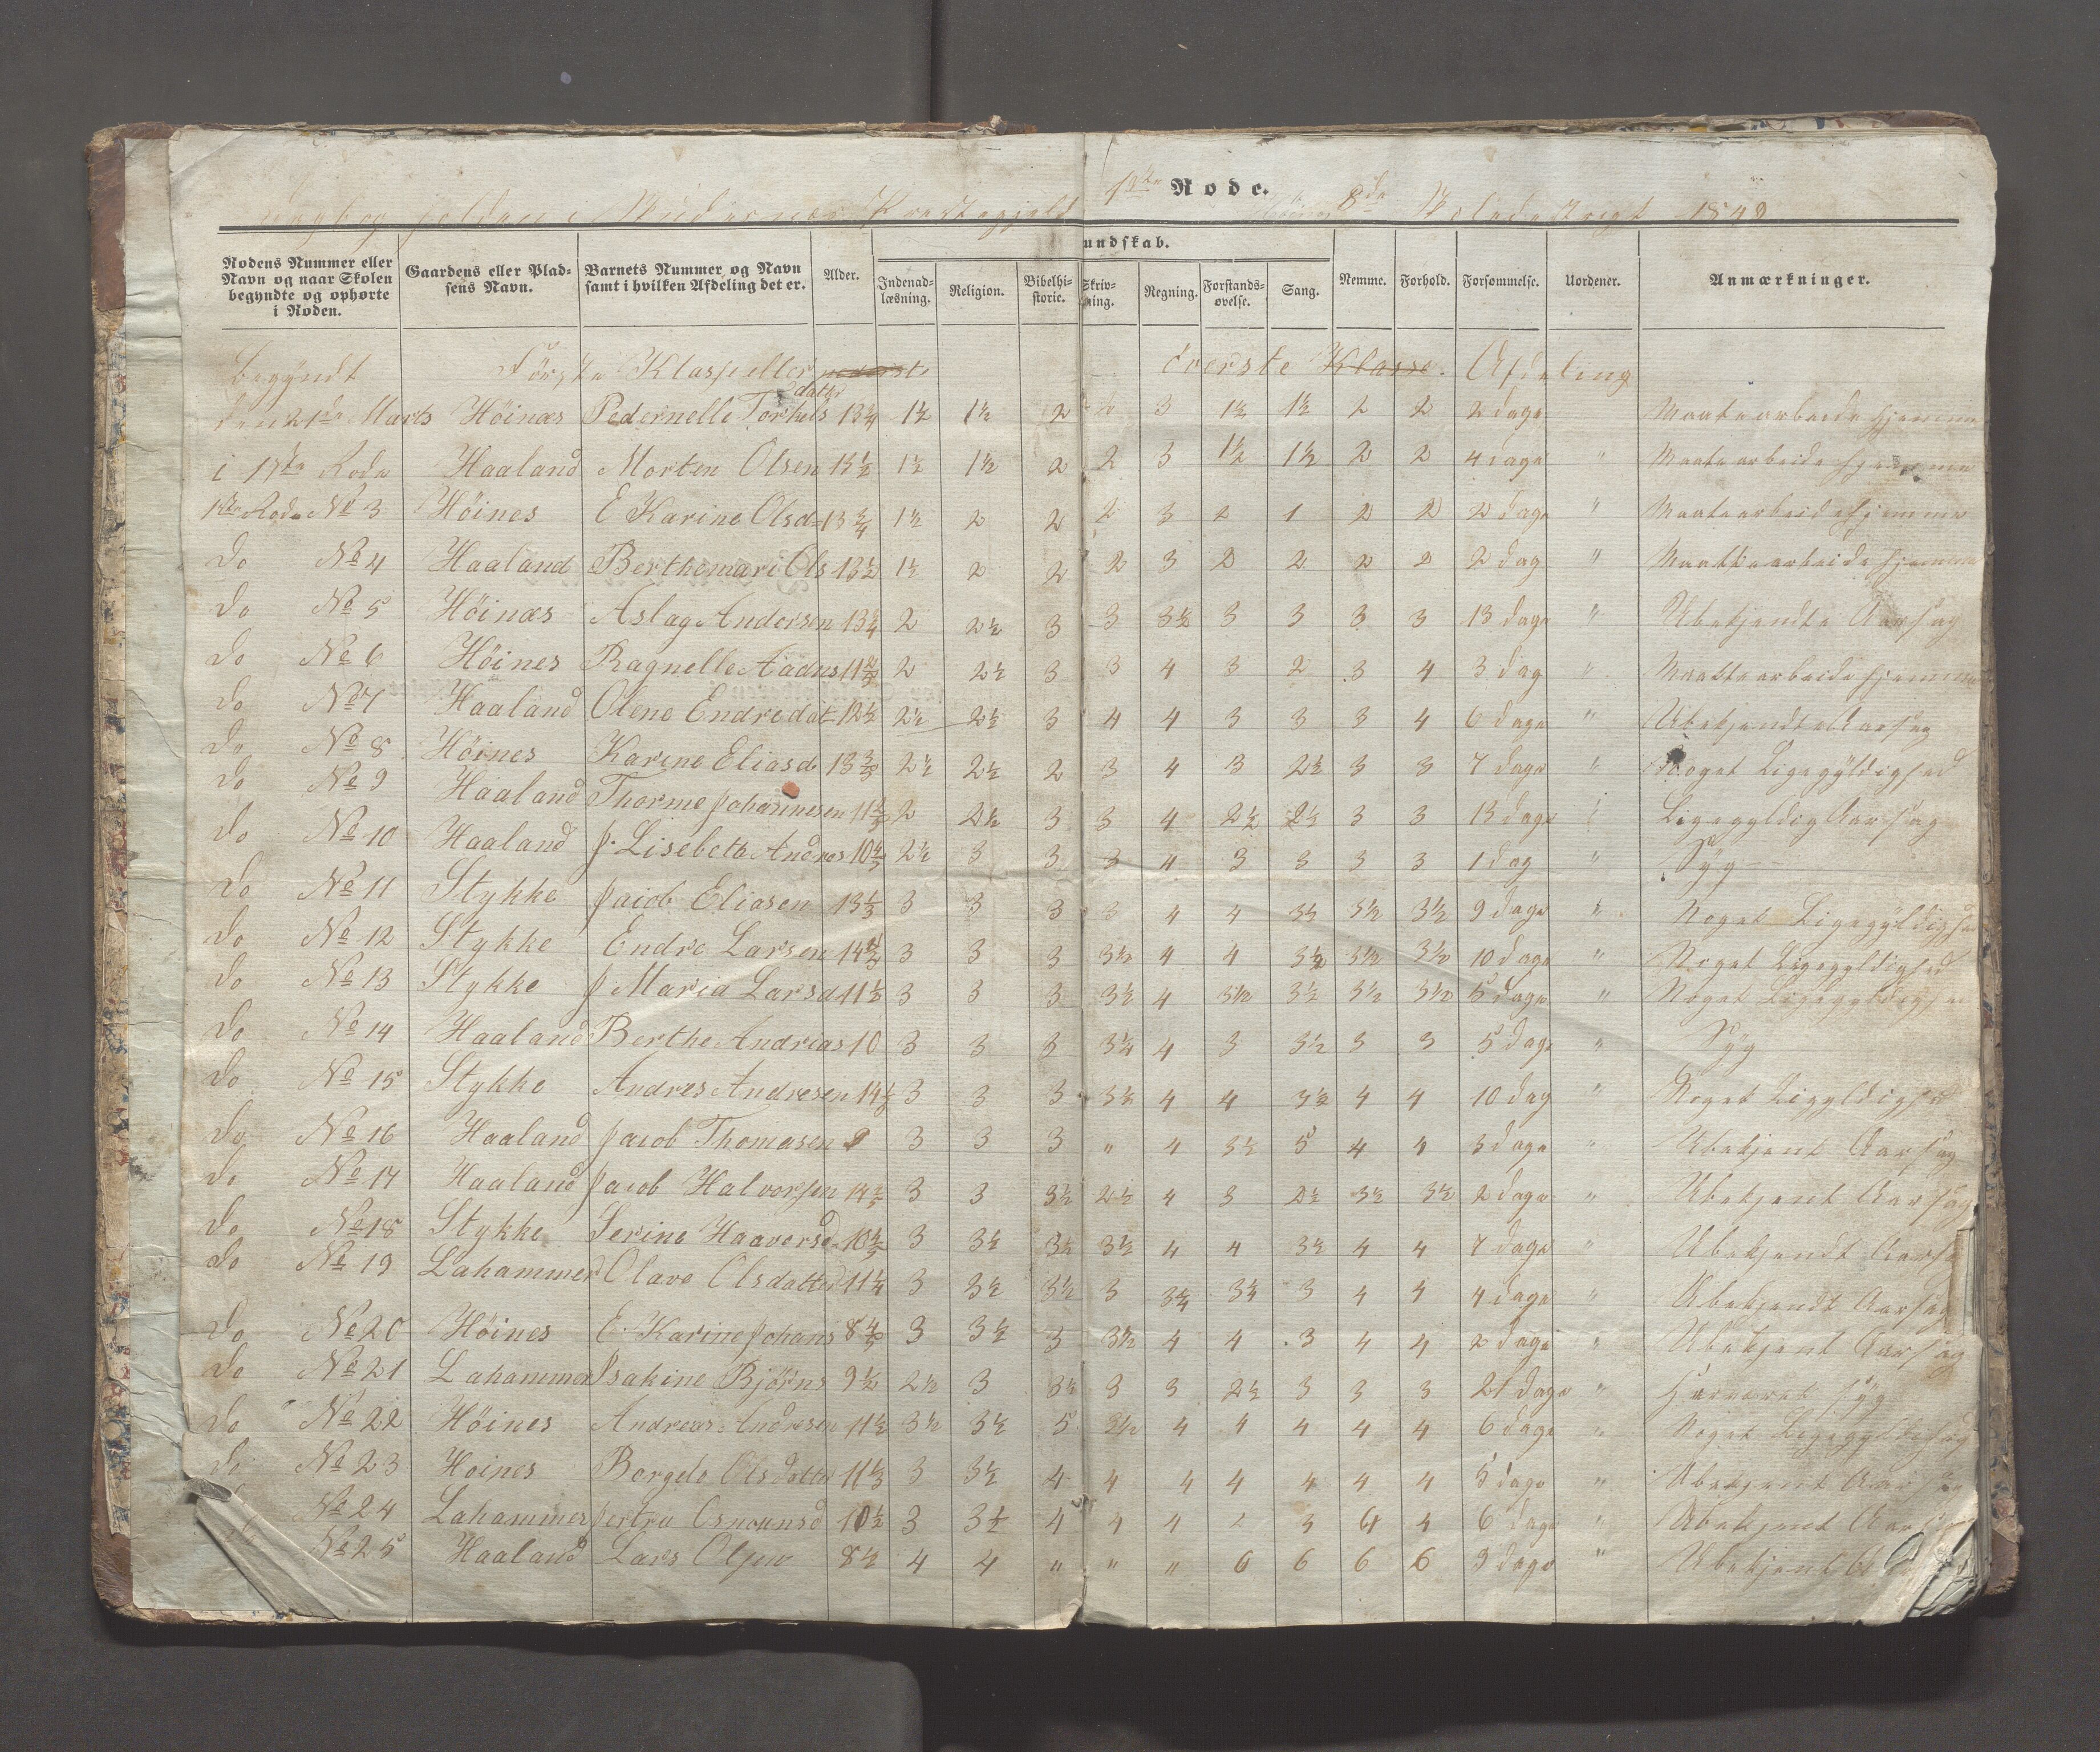 1ste Rode.
8de 1849
Rodens Nummer eller Navn og naar Skolen begyndte og ophørte i Roden. | Gaardens eller Pladsens Navn. | Barnets Nummer og Navn samt i hvilken Afdeling det er. | Alder. | Indenadlæsning. | Religion. | Bibelhistorie. | undskab. | Skrivning. | Regning. | Forstandsøvelse. | Sang. | Nemme. | Forhold. | Forsømmelse. | Uordener. | Anmærkninger.
Begyndt Förste Klasse eller nederste överste Klasse. Afdeling
den 21de Marts Höinæs Pedernelle Torkels datter 13 1/4 1½ 1½ 2 2 3 1½ 1½ 2 2 2 dage Maate arbeide hjemme
i 17de Rode Haaland Morten Olsen 13½ 1½ 1½ 2 2 3 1½ 1½ 2 2 4 dage " Maate arbeide hjemme
1ste Rode No 3 Höines E Karine Olsd 13 3/4 1½ 2 2 2 3 2 1 2 2 2 dage " Maate arbeide hjemme
Do No 4 Haaland Berthemari Ols 13½ 1½ 2 2 2 3 2 2 2 2 2 dag " Maatte arbeide hjemme
Do No 5 Höinæs Aslag Andersen 13 1/4 2 2½ 3 3 3½ 3 3 3 3 13 dage " Ubekjendte Aarsag
Do No 6 Höines Ragnelle Aadns 11 2/3 2 2½ 3 3 4 3 2 3 4 3 dag " Maatte arbeide hjemme
Do No 7 Haaland Olene Endredat 12½ 2½ 2½ 3 4 4 3 3 3 4 6 dage " Ubekjendte Aarsag
Do No 8 Höines Karine Eliasd 13 2½ 2½ 2 3 4 3 2½ 3 3 7 dage " Noget Ligegyldighed
Do No 9 Haaland Thorme Johannesen 11 2 2½ 3 3 4 2½ 2½ 3 3 13 dage Ligegyldig Aarsag
Do No 10 Haaland J. Lisebeta Andres 10 2½ 3 3 3 4 3 3 3 3 1 dag " Syg
Do No 11 Stykke Jaiob Eliasen 13 1/3 3 3 3 3 4 4 3½ 3½ 3½ 9 dage " Noget Ligegyldighed
Do No 12 Stykke Endre Larsen 14 3 3 3 3½ 4 4 3½ 3½ 3½ 10 dage " Noget Ligegyldighed
Do No 13 Stykke J Maria Larsd 11½ 3 3 3 3½ 4 3½ 3½ 3½ 3½ 5 dage " Noget Ligegyldighed
Do No 14 Haaland Berthe Andrias 10 3 3 3 3 1/4 4 3 3½ 3 3 5 dage " Syg
Do No 15 Stykke Andres Andresen 14 3 3 3 3½ 4 4 3½ 4 4 10 dag " Noget Ligyldighed
Do No 16 Haaland Jacob Thomasen 9 3 3 3 " 4 3½ 5 4 4 3 dage " Ubekjent Aarsag
Do No 17 Haaland Jacob Halvorsen 14 3 3 3½ 2½ 4 3 2½ 3½ 3½ 2 dage " Ubekjent Aarsag
Do No 18 Stykke Serine Haavorsd 10 3 3½ 3½ 3½ 4 4 3½ 4 4 7 dage " Ubekjendt Aarsa
Do No 19 Lahammer Olave Olsdatter 11 1/4 3 3½ 3½ 3 3 3/4 3 1/4 3 4 4 4 dage " Ubekjendt Aarsag
Do No 20 Höines E. Karine Johans 8 3 3½ 3 3½ 4 4 3 4 4 2 dage " Ubekjent Aarsag
Do No 21 Lahammer Isakine Björns 9½ 2½ 3 3½ 3 3 2½ 3 3 3 21 dage " Haværet Syg
Do No 22 Höines Andreas Andresen 11½ 3½ 3½ 5 3½ 4 4 4 4 4 6 dage " Noget Ligegyldighed
Do No 23 Hoines Borgele Olsdatter 11 1/3 3 3½ 4 4 4 4 4 4 4 5 dage " Ubekjent Aarsag
No 24 Lahammer Osmunsd 10½ 3 3½ 4 4 4 3 4 4 6 dage " Ubekjent Aarsag
Do No 25 Haaland Lars Olsen 8½ 4 4 " " " 6 6 6 6 9 dage " Ubekjent